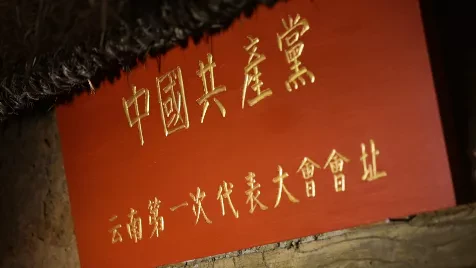 中國共產黨
云南第一次代表大會會址